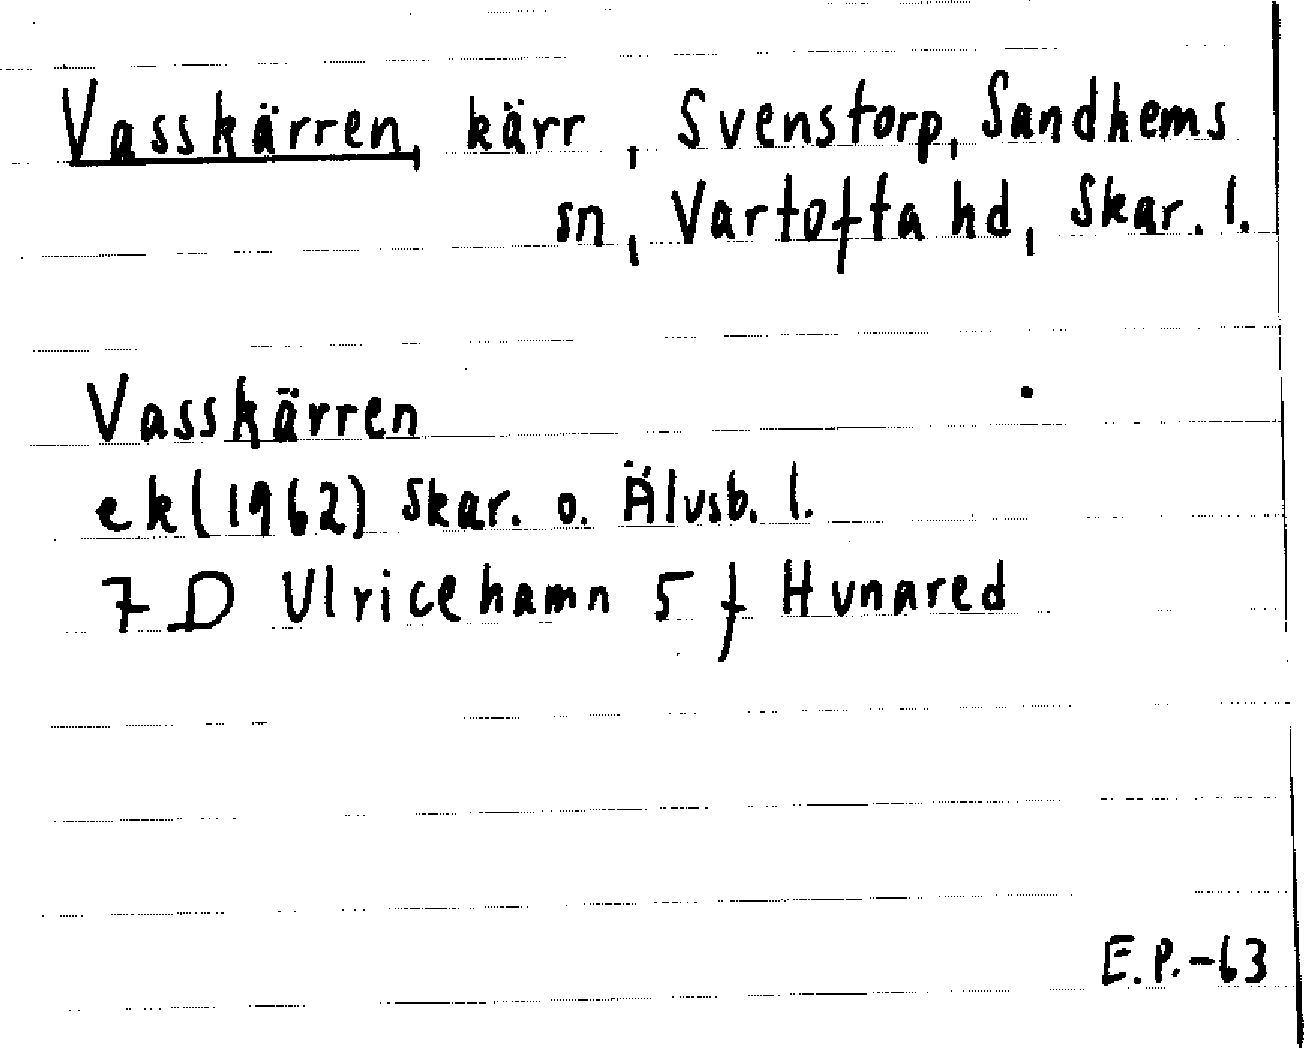 Vasskärren, kärr, Svenstorp, Sandhems
sn, Vartofta hd, Skar. l.
Vasskärren
ek (1962) Skar. o. Älvsb. l.
7 D Ulricehamn 5 f Hvnared
E.P.-63